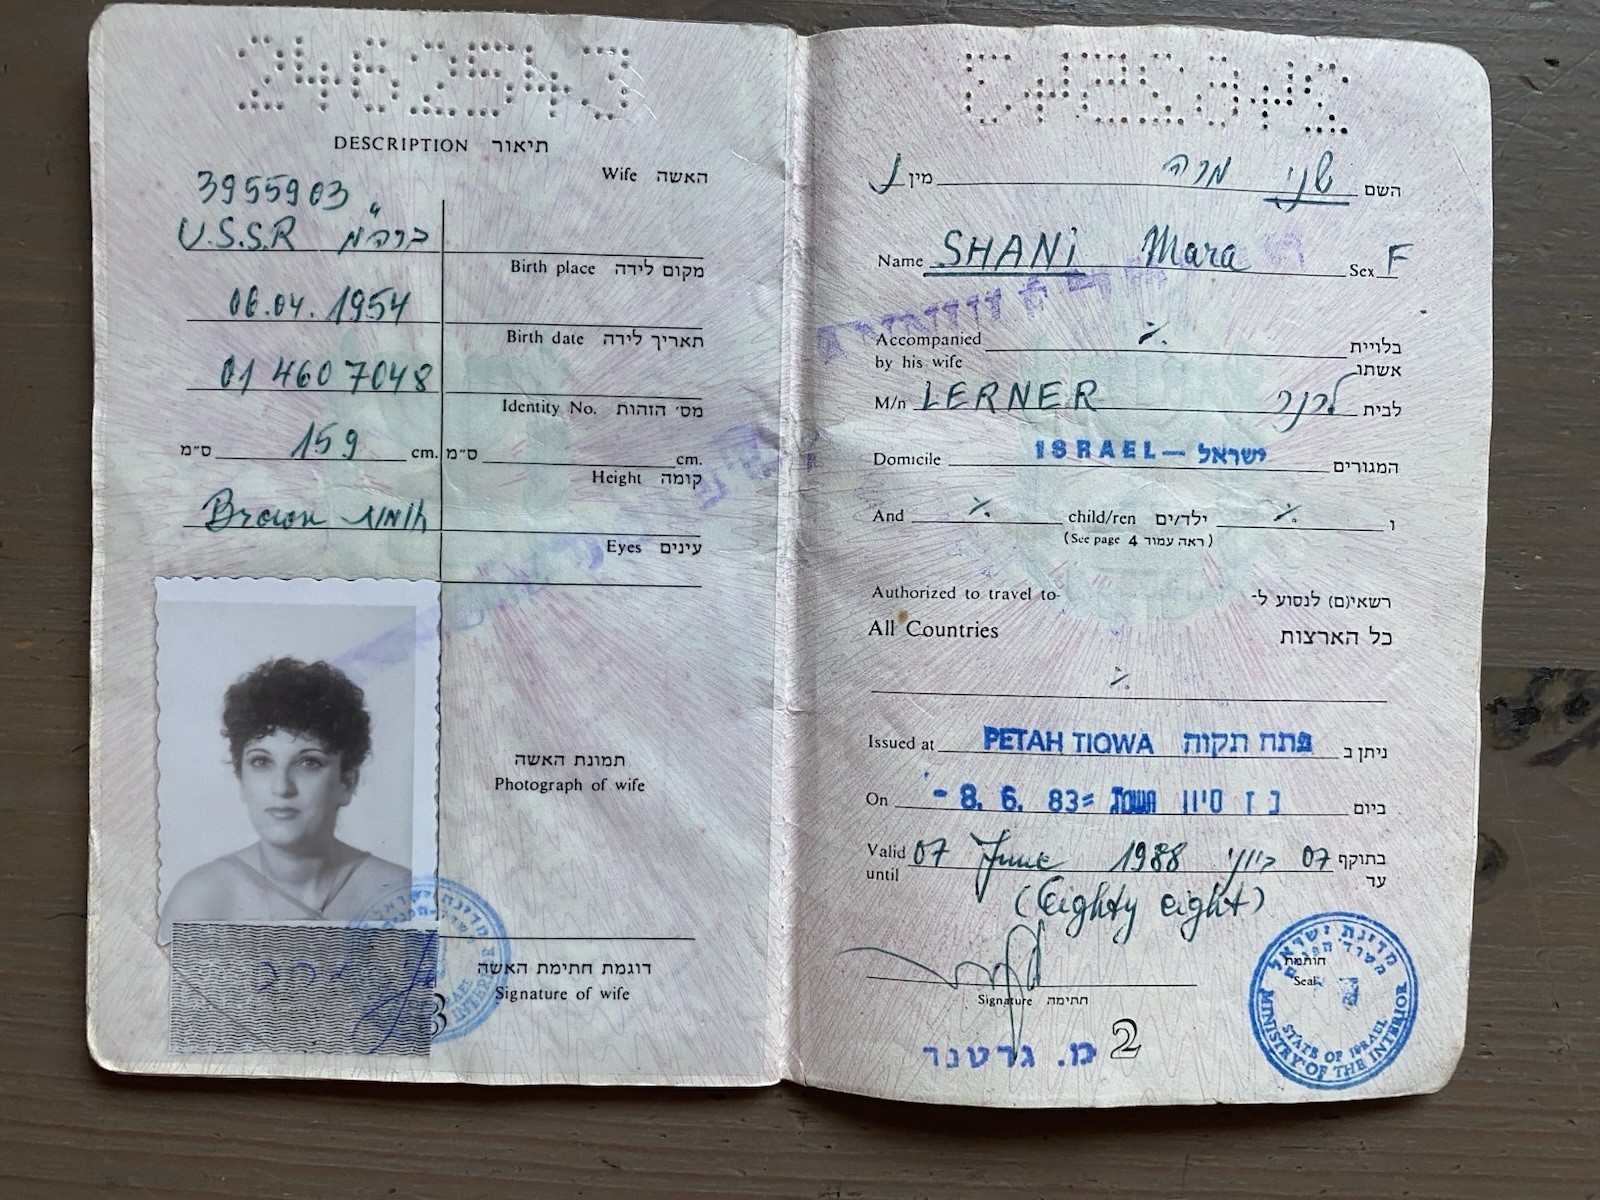 2462543
DESCRIPTION תיאור
Wife האשה
3955903
U.S.S.R ברה"מ
Birth place מקום לידה
06.04.1954
Birth date תאריך לידה
01 4607048
Identity No. מס׳ הזהות
ס״מ 159 cm. ס״מ cm.
Height קומה
Brown חומות
Eyes עינים
תמונת האשה
Photograph of wife
דוגמת חתימת האשה
Signature of wife
3
2462543
השם שני מרה מין נ
Name SHANI Mara Sex F
Accompanied by his wife ٪ בלויית אשתו
M/n LERNER לרנר לבית
Domicile ISRAEL — ישראל המגורים
And ٪ child/ren ילד/ים ٪ ו
(See page 4 ראה עמוד)
Authorized to travel to- רשאי(ם) לנסוע ל-
All Countries כל הארצות
٪
Issued at PETAH TIQWA פתח תקוה ניתן ב
On - 8. 6. 83 = כ ז סיון תשמג ביום
Valid until 07 June 1988 07 ביוני בתוקף עד
(Eighty eight)
Signature חתימה
מ. גרטנר
2
חותמת
Seal
מדינת ישראל
משרד הפנים
STATE OF ISRAEL
MINISTRY OF THE INTERIOR